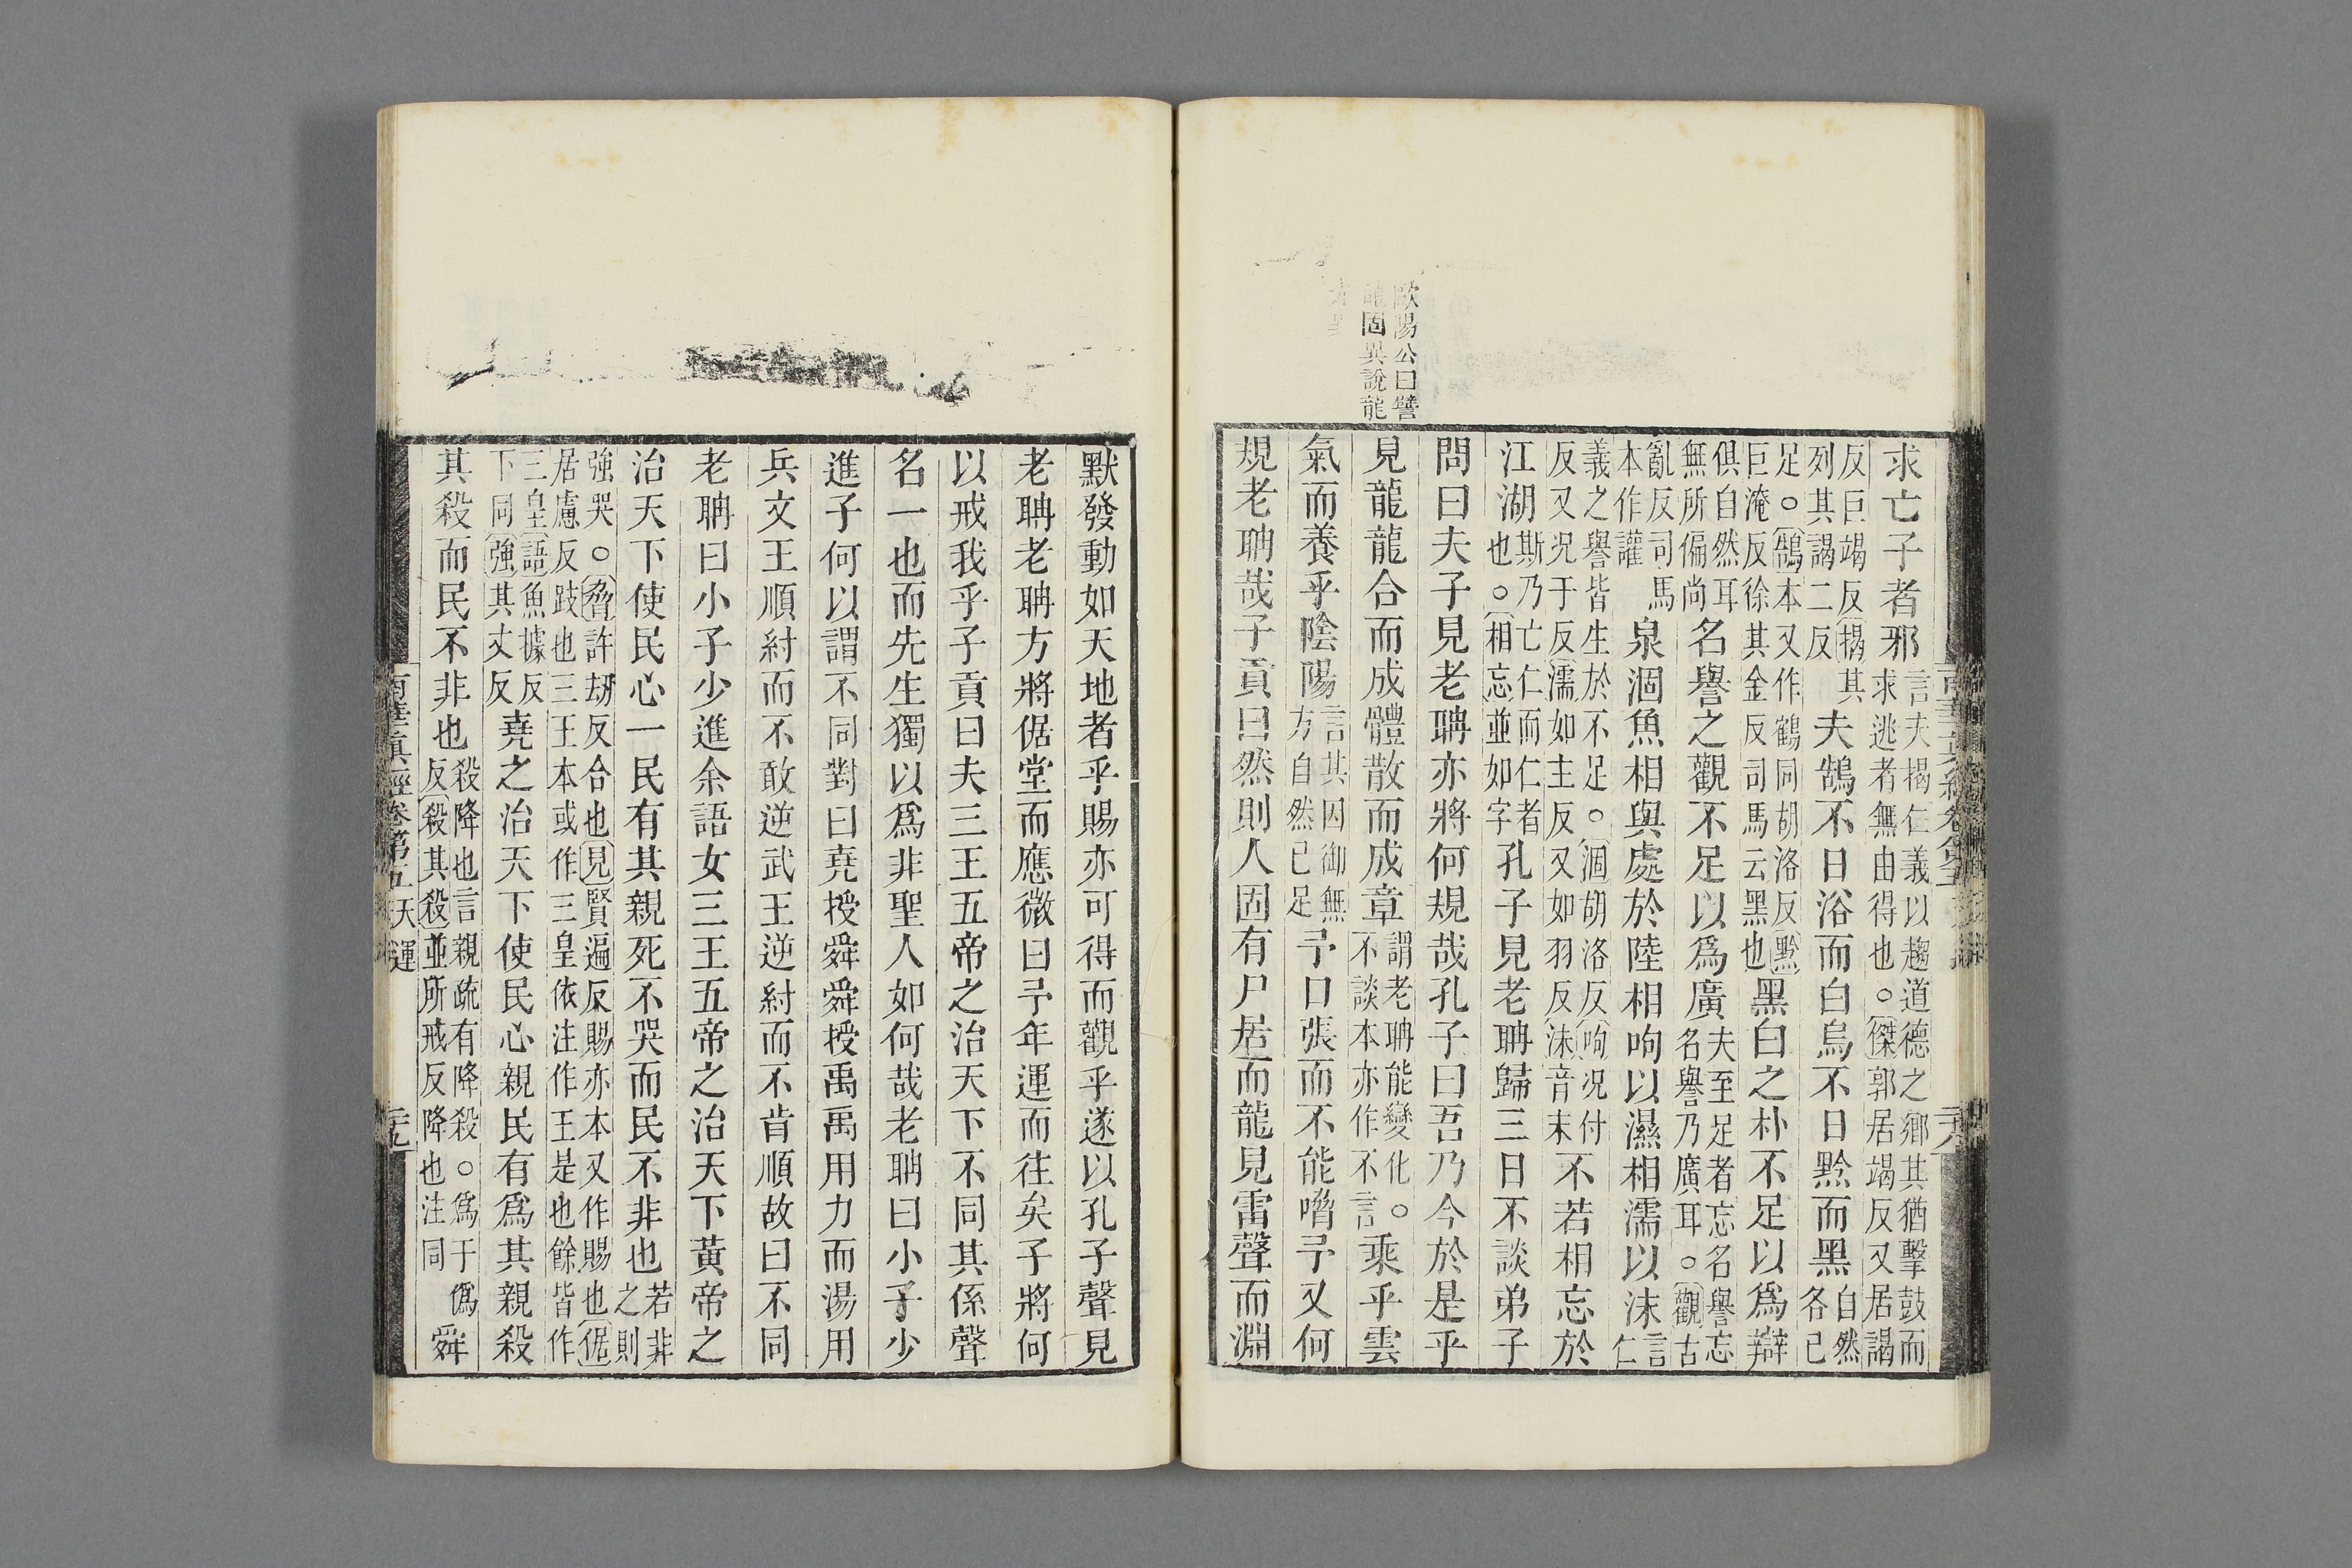 歐陽公曰譬
龍固異說龍
求亡子者邪言夫揭仁義以趨道德之鄉其猶擊鼓而求逃者無由得也○傑郭居竭反又居謁
反巨竭反揭其列其謁二反夫鵠不日浴而白烏不日黔而黑自然各已
足○鵠本又作鶴同胡洛反黔巨淹反徐其金反司馬云黑也黑白之朴不足以爲辯
俱自然耳無所偏尚名譽之觀不足以爲廣夫至足者忘名譽忘名譽乃廣耳○觀古
亂反司馬本作讙泉涸魚相與處於陸相呴以濕相濡以沫言仁
義之譽皆生於不足○涸胡洛反呴况付反又况于反濡如主反又如羽反沫音末不若相忘於
江湖斯乃亡仁而仁者也○相忘並如字孔子見老聃歸三日不談弟子
問曰夫子見老聃亦將何規哉孔子曰吾乃今於是乎
見龍龍合而成體散而成章謂老聃能變化○不談本亦作不言乘乎雲
氣而養乎陰陽言其因御無方自然已足予口張而不能嗋予又何
規老聃哉子貢曰然則人固有尸居而龍見雷聲而淵
默發動如天地者乎賜亦可得而觀乎遂以孔子聲見
老聃老聃方將倨堂而應微曰予年運而往矣子將何
以戒我乎子貢曰夫三王五帝之治天下不同其係聲
名一也而先生獨以爲非聖人如何哉老聃曰小子少
進子何以謂不同對曰堯授舜舜授禹禹用力而湯用
兵文王順紂而不敢逆武王逆紂而不肯順故曰不同
老聃曰小子少進余語女三王五帝之治天下黃帝之
治天下使民心一民有其親死不哭而民不非也若非之則
強哭○脅許刼反合也見賢遍反賜亦本又作賜也倨居慮反跂也三王本或作三皇依注作王是也餘皆作
三皇語魚據反下同強其丈反堯之治天下使民心親民有爲其親殺
其殺而民不非也殺降也言親疏有降殺○爲于僞反殺其殺並所戒反降也注同舜
南華眞經卷第五天運
二十九